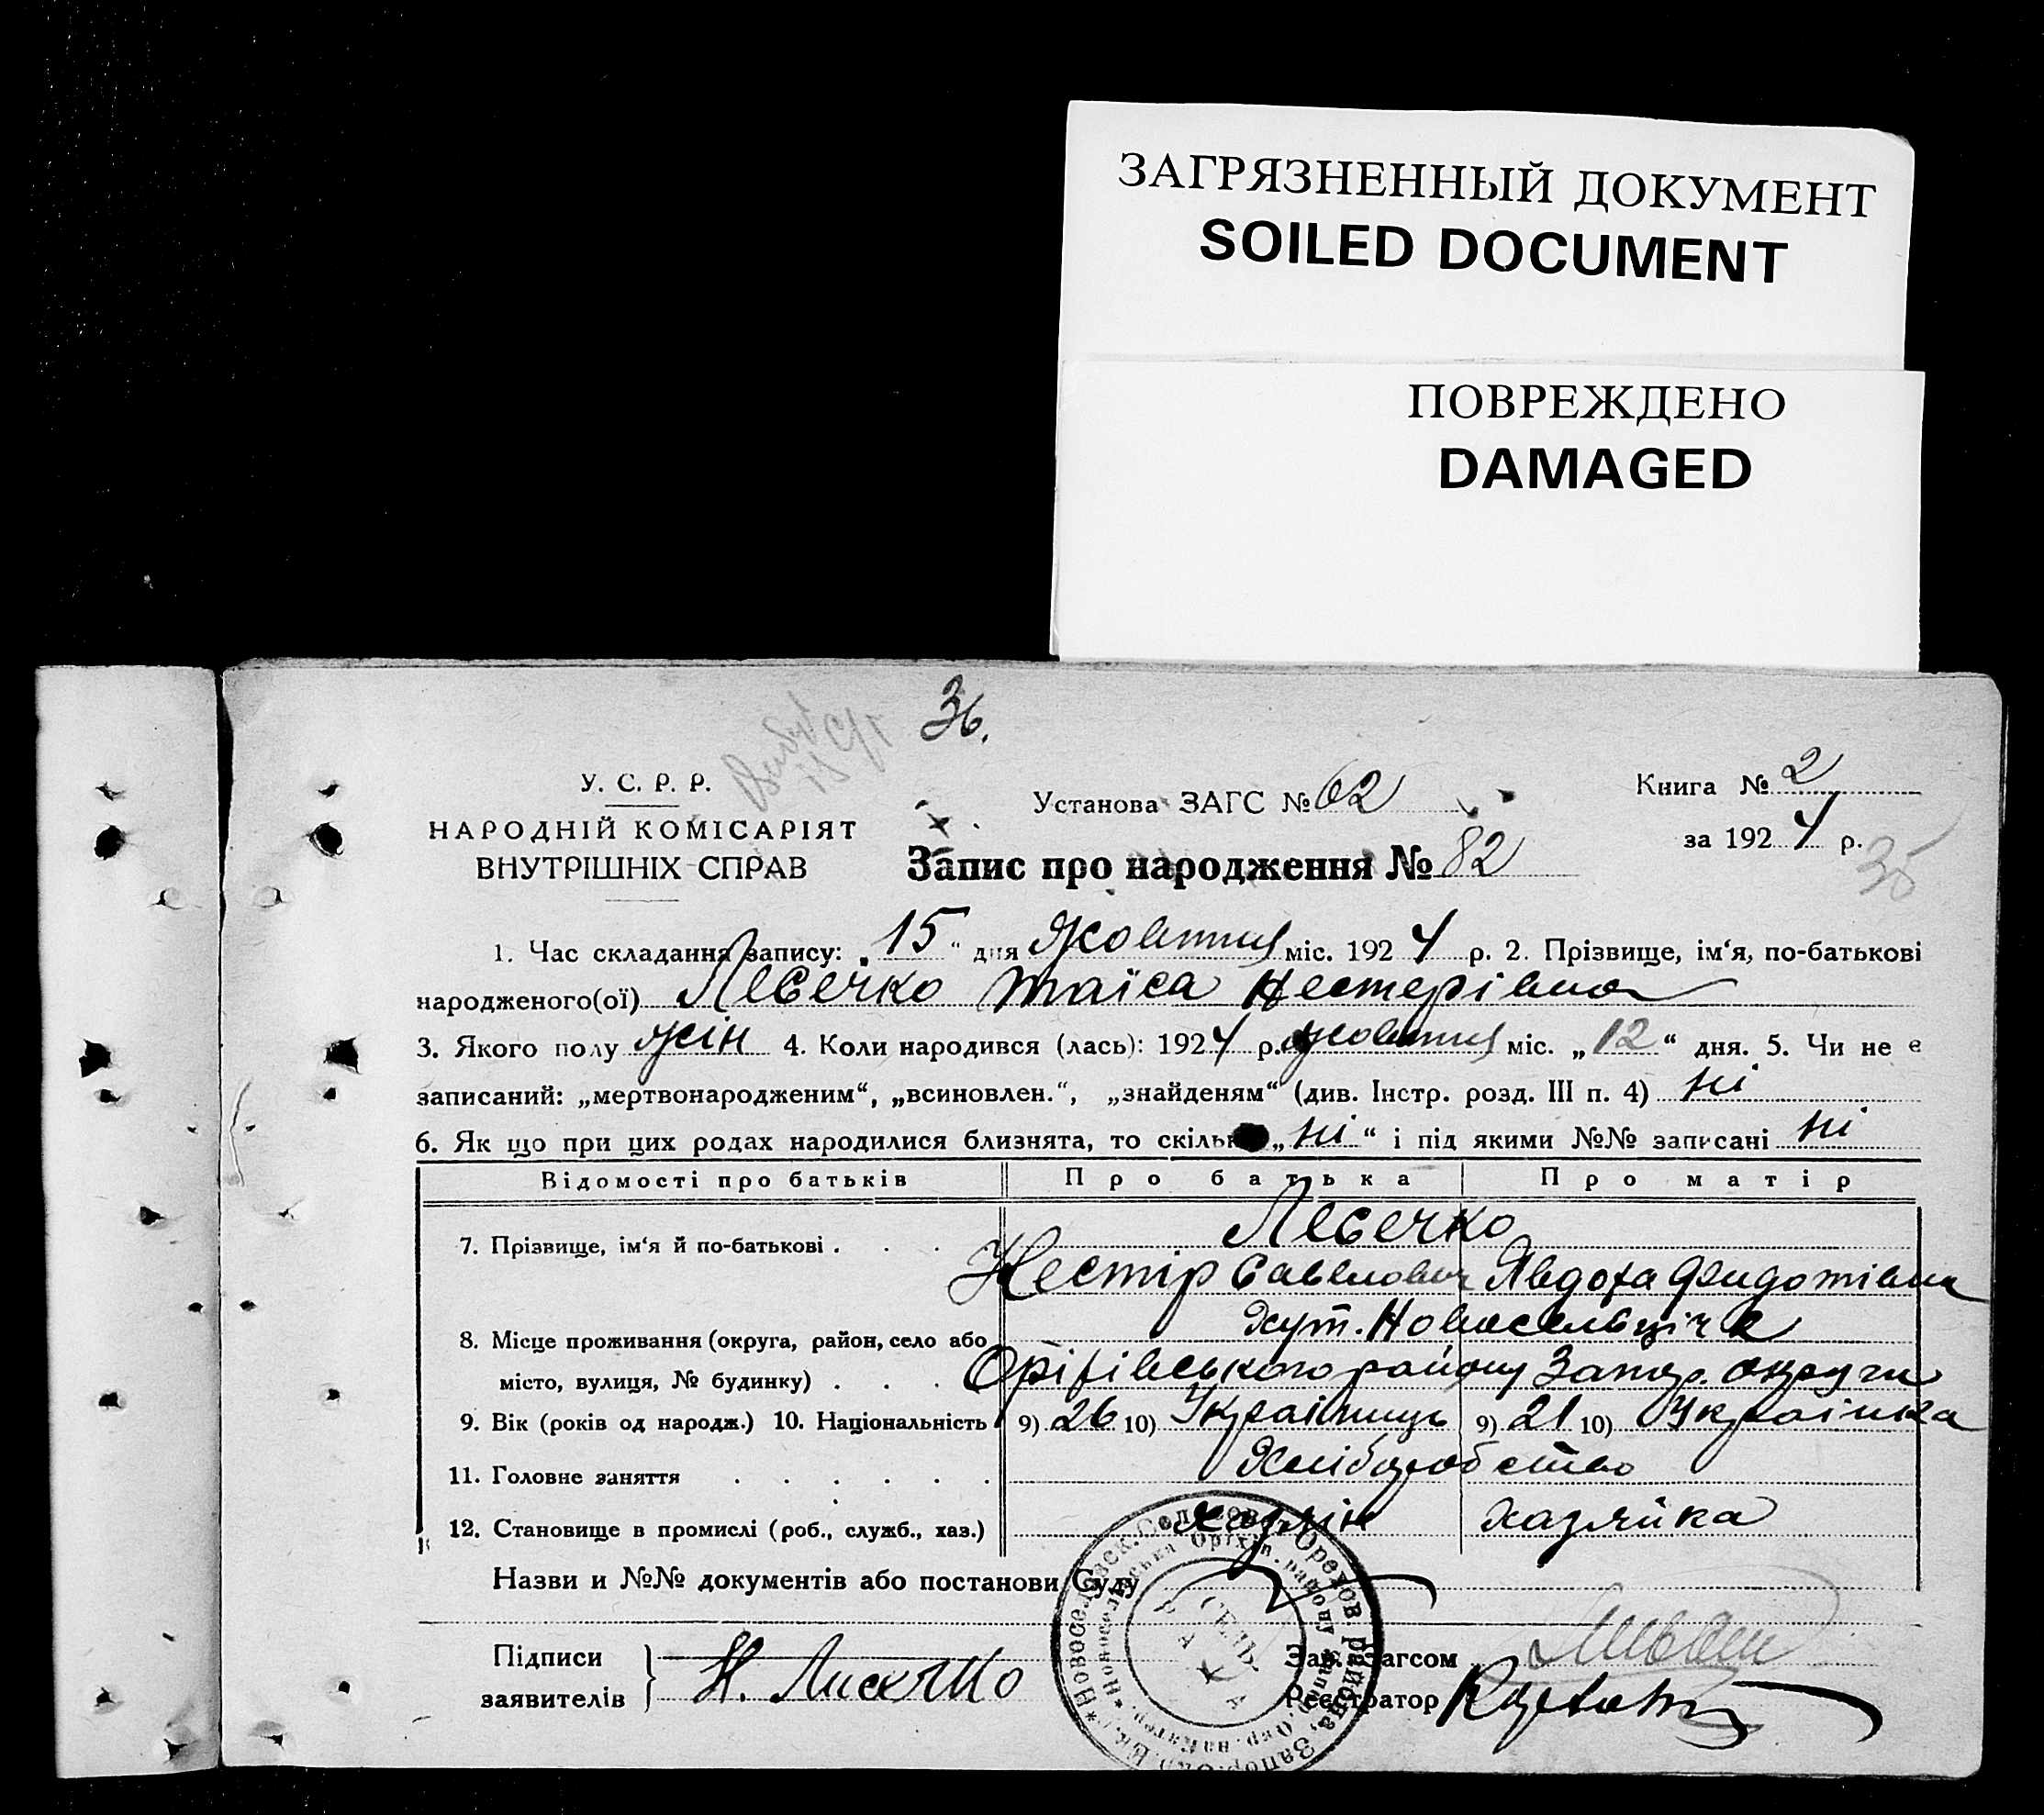 ЗАГРЯЗНЕННЫЙ ДОКУМЕНТ
SOILED DOCUMENT
ПОВРЕЖДЕНО
DAMAGED
36.
У. С. Р. Р.
НАРОДНІЙ КОМІСАРІЯТ
ВНУТРІШНІХ СПРАВ
Установа ЗАГС № 62
Книга № 2
за 1924 р.
35
Запис про народження № 82
1. Час складання запису: „15“ дня Жовтня міс. 1924 р. 2. Прізвище, ім‘я, по-батькові
народженого(ої) Лесечко Таїса Нестерівна
3. Якого полу жін 4. Коли народився (лась): 1924 р. жовтня міс. „12“ дня. 5. Чи не є
записаний: „мертвонародженим“, „всиновлен.“, „знайденям“ (див. Інстр. розд. III п. 4) ні
6. Як що при цих родах народилися близнята, то скільки „ні“ і під якими №№ записані ні
Відомості про батьків Про батька Про матір
Лесечко
7. Прізвище, ім‘я й по-батькові . . .
Нестір Савелович Явдоха Федотівна
Хут. Новоселівцічк
8. Місце проживання (округа, район, село або
місто, вулиця, № будинку) . . . Оріхівського району Запор. округи
9. Вік (років од народж.) 10. Національність 9) 26 10) Українець 9) 21 10) Українка
11. Головне заняття . . . . . . Хліборобство
12. Становище в промислі (роб., служб., хаз.) хазяїн хазяйка
Назви и №№ документів або постанови Суду
Підписи
заявителів
Н. Лисечко
Зав. Загсом
Реєстратор
СЕЛЬ
РАДА